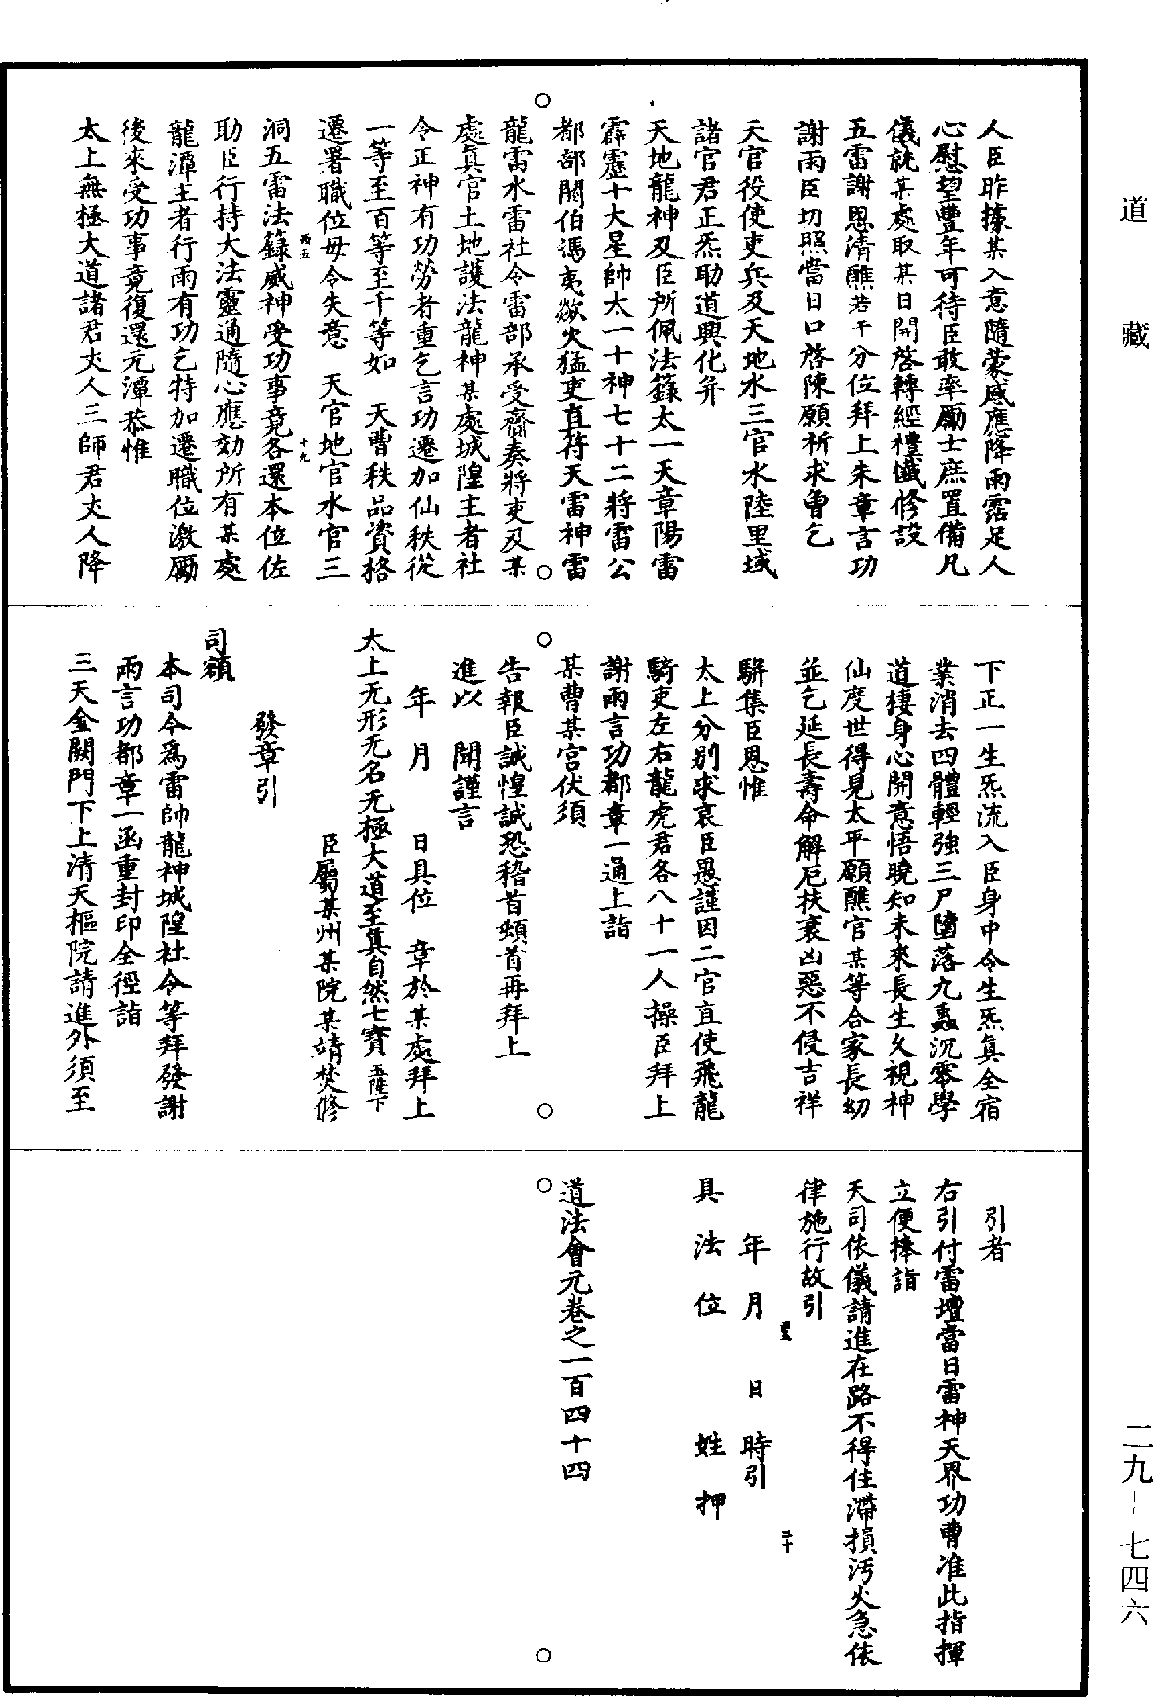 道藏
人臣昨據某入意隨蒙感應降雨霑足人
心慰望豐年可待臣敢率勵士庶置備凡
儀就某處取某日開啓轉經禮懺修設
五雷謝恩清醮若干分位拜上朱章言功
謝雨臣切照當日口啓陳願祈求曾乞
天官役使吏兵及天地水三官水陸里域
諸官君正炁助道興化并
天地龍神及臣所佩法籙太一天章陽雷
霹靂十大星帥太一十神七十二將雷公
都部閼伯馮夷歘火猛吏直符天雷神雷
龍雷水雷社令雷部承受齋奏將吏及某
處真官土地護法龍神某處城隍主者社
令正神有功勞者重乞言功遷加仙秩從
一等至百等至千等如 天曹秩品資格
遷署職位毋令失意 天官地官水官三
十九
洞五雷法籙威神受功事竟各還本位佐
助臣行持大法靈通隨心應効所有某處
龍潭主者行雨有功乞特加遷職位激勵
後來受功事竟復還元潭恭惟
太上無極大道諸君丈人三師君夫人降
下正一生炁流入臣身中令生炁真全宿
業消去四體輕強三尸墮落九蟲沉零學
道棲身心開意悟曉知未來長生久視神
仙度世得見太平願醮官某等合家長幼
並乞延長壽命解厄扶衰凶惡不侵吉祥
駢集臣恩惟
太上分別求哀臣愚謹因二官直使飛龍
騎吏左右龍虎君各八十一人操臣拜上
謝雨言功都章一通上詣
某曹某宮伏須
告報臣誠惶誠恐稽首頓首再拜上
進以 聞謹言
年 月 日具位 章於某處拜上
太上无形无名无極大道至真自然七寶
臣屬某州某院某靖焚修
發章引
司額
本司今爲雷帥龍神城隍社令等拜發謝
雨言功都章一函重封印全徑詣
三天金闕門下上清天樞院請進外須至
引者
右引付雷壇當日雷神天界功曹准此指揮
立便捧詣
天司依儀請進在路不得住滯損污火急依
律施行故引
二十
年 月 日 時引
具 法 位 姓 押
道法會元卷之一百四十四
二九—七四六